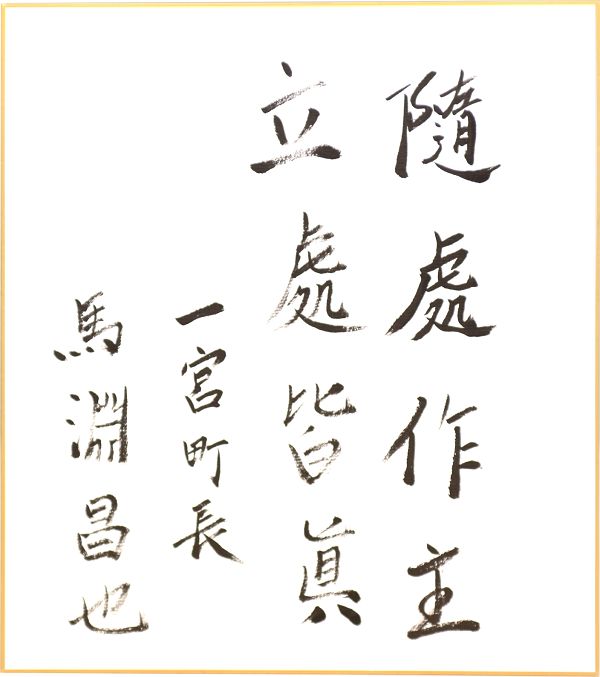 隨處作主
立處皆眞
一宮町長
馬淵昌也